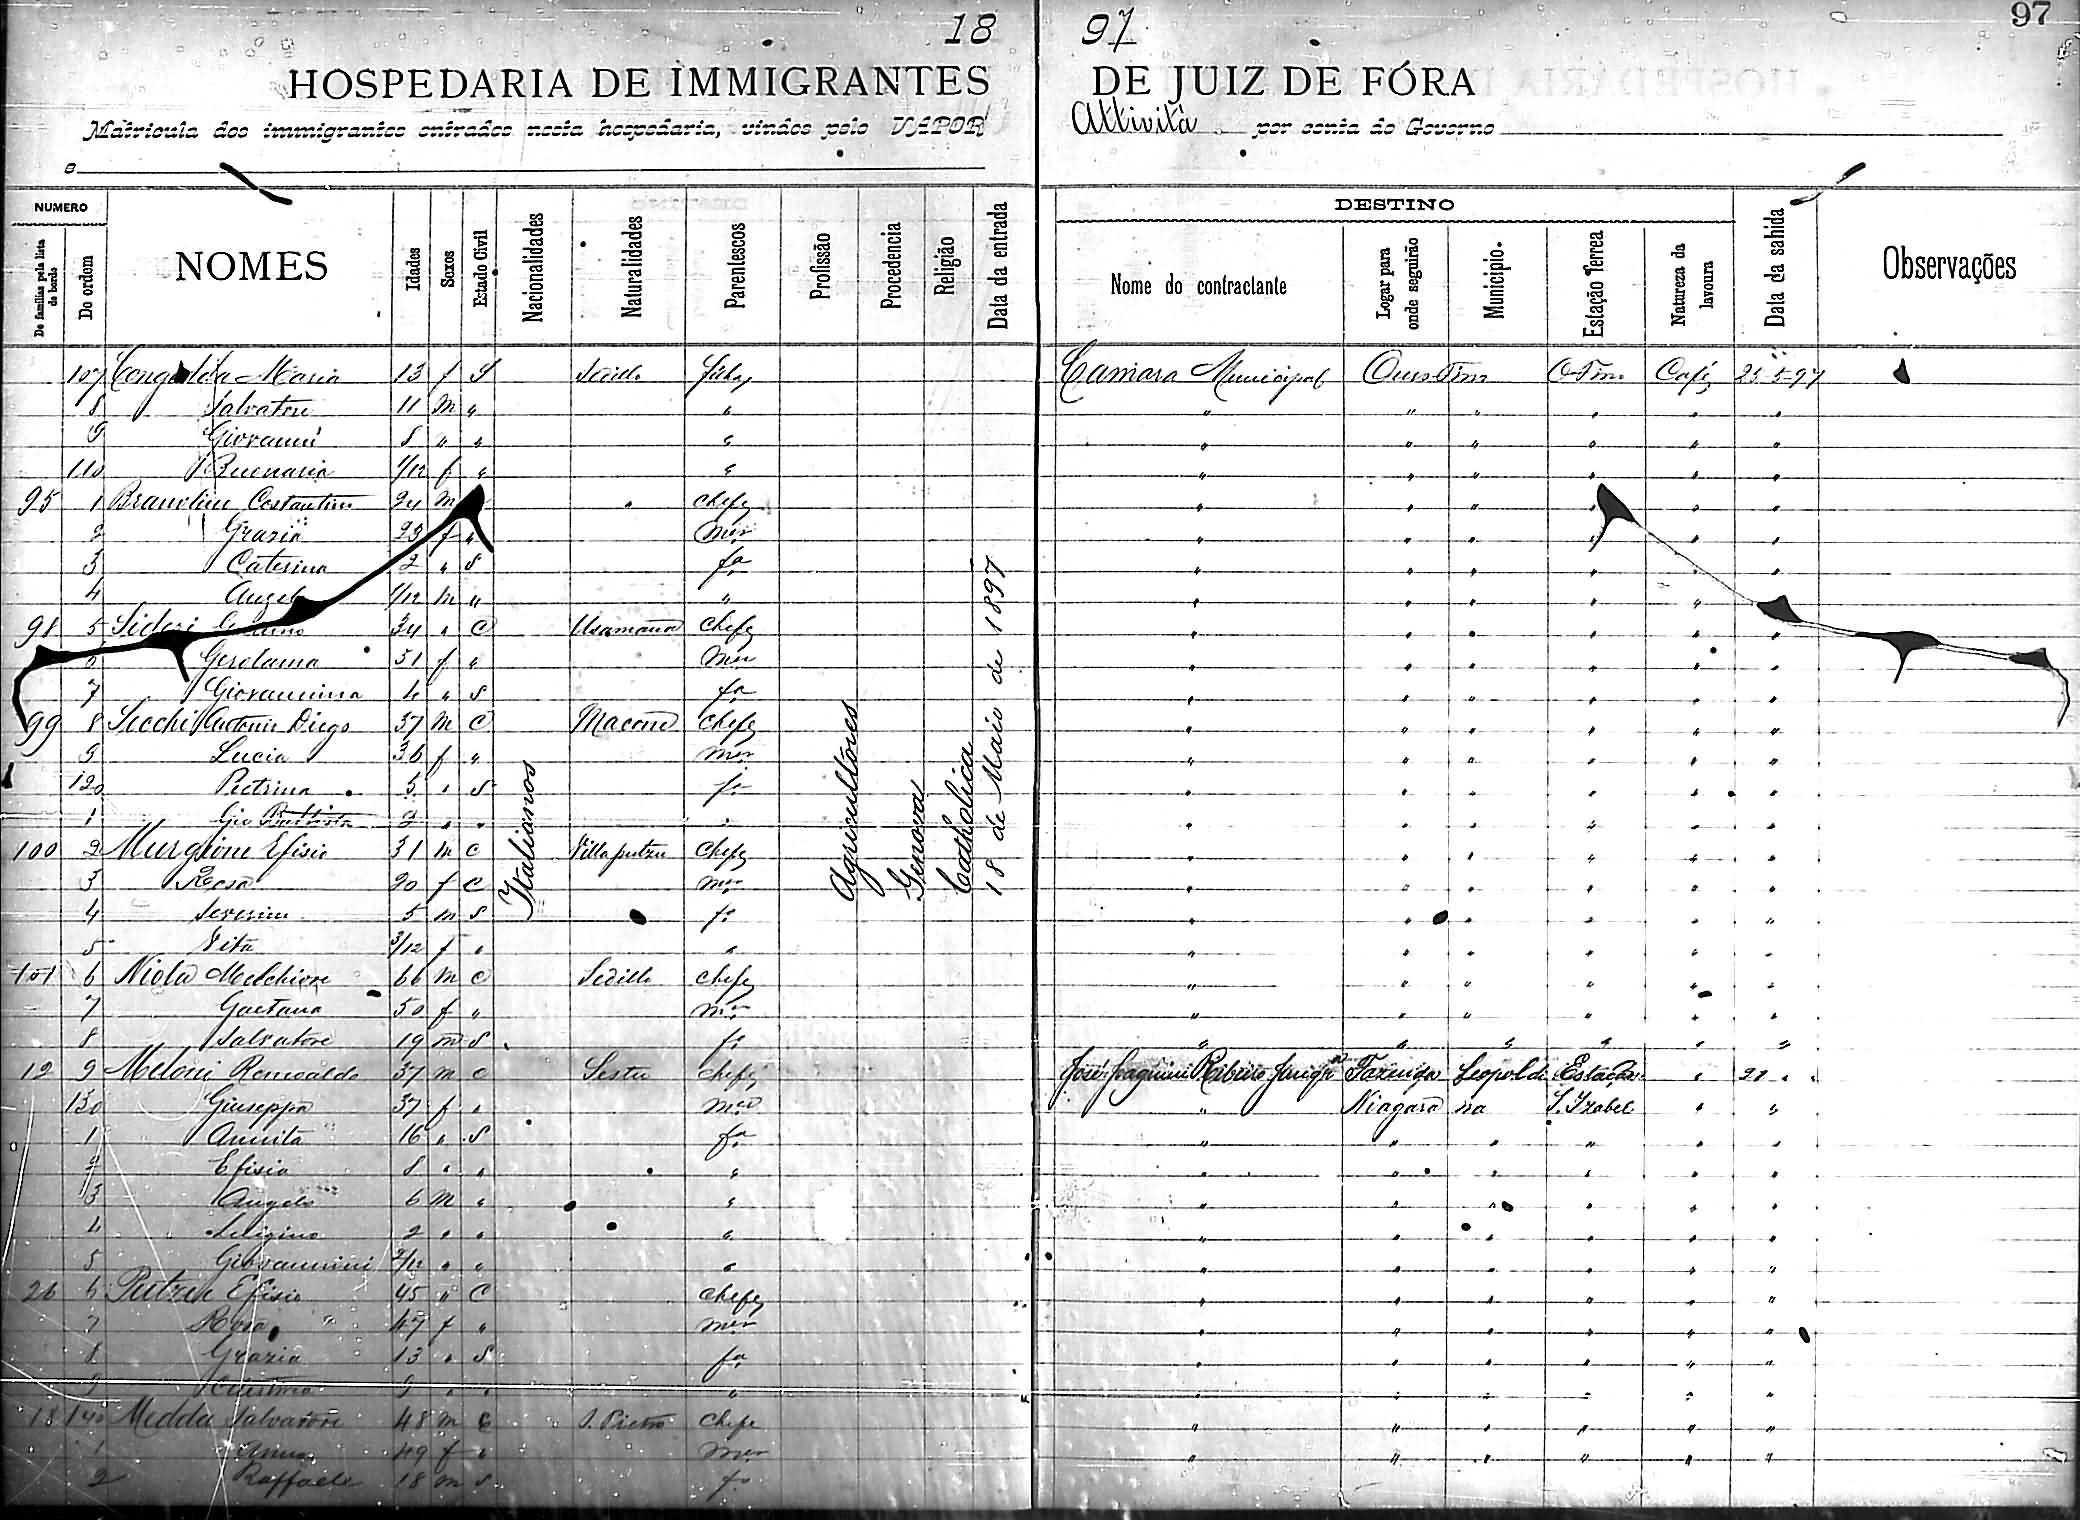 97
18 97
HOSPEDARIA DE IMMIGRANTES DE JUIZ DE FÓRA
Matricula dos immigrantes entrados nesta hospedaria, vindos pelo VAPOR Attività por conta do Governo
e
NUMERO
De familias pela lista de bordo
Do ordem
NOMES
Idades
Sexos
Estado Civil
Nacionalidades
Naturalidades
Parentescos
Profissão
Procedencia
Religião
Data da entrada
DESTINO
Nome do contractante
Logar para onde seguirão
Municipio.
Estação Ferrea
Natureza da lavoura
Data da sahida
Observações
Italianos
Agricultores
Genova
Catholica
18 de Maio de 1897
107 Maria 13 f S Camara Municipal Ouro Fino O. Fino Café 25-5-97
8 Salvatore 11 m " " " " " " " "
9 Giovanni 8 " " " " " " " " "
110 1/12 f " " " " " " " "
95 1 Costantino 24 m " Chefe " " " " " "
2 Grazia 23 f " mer " " " " " "
3 Caterina 2 " S fa " " " " " "
4 1/12 m " " " " " " " "
98 5 34 " C Chefe " " " " " "
Gerolama 31 f " mer " " " " " "
7 Giovannina 4 " S fa " " " " " "
99 8 Secchi Antonio Diego 37 m C Chefe " " " " " "
9 Lucia 36 f " mer " " " " " "
120 Pietrina 5 " S fa " " " " " "
1 Gio Battista 2 " " " " " " " " "
100 2 Efisio 31 m C Villaputzu Chefe " " " " " "
3 Rosa 20 f C mer " " " " " "
4 5 m S fo " " " " " "
5 Vita 3/12 f " " " " " " " "
101 6 Niola Melchiore 66 m C Sedilo Chefe " " " " " "
7 Gaetana 50 f " mer " " " " " "
8 Salvatore 19 m S fo " " " " " "
12 9 Meloni Romoaldo 37 m C Sestu Chefe José Joaquim Ribeiro Fazenda Leopoldi Estação " 21 "
130 Giuseppa 37 f " mer " Niagara na S. Izabel " "
1 Annita 16 " S fa " " " " " "
2 Efisia 8 " " " " " " " " "
3 Angelo 6 m " " " " " " " "
4 2 " " " " " " " " "
5 2/12 " " " " " " " " "
26 6 Efisio 45 " C Chefe " " " " " "
7 Rosa 47 f " mer " " " " " "
8 Grazia 13 " S fa " " " " " "
9 9 " " " " " " " " "
18 140 Medda Salvatore 48 m C S. Pietro Chefe " " " " " "
1 Anna 49 f " mer " " " " " "
2 Raffaele 18 m S fo